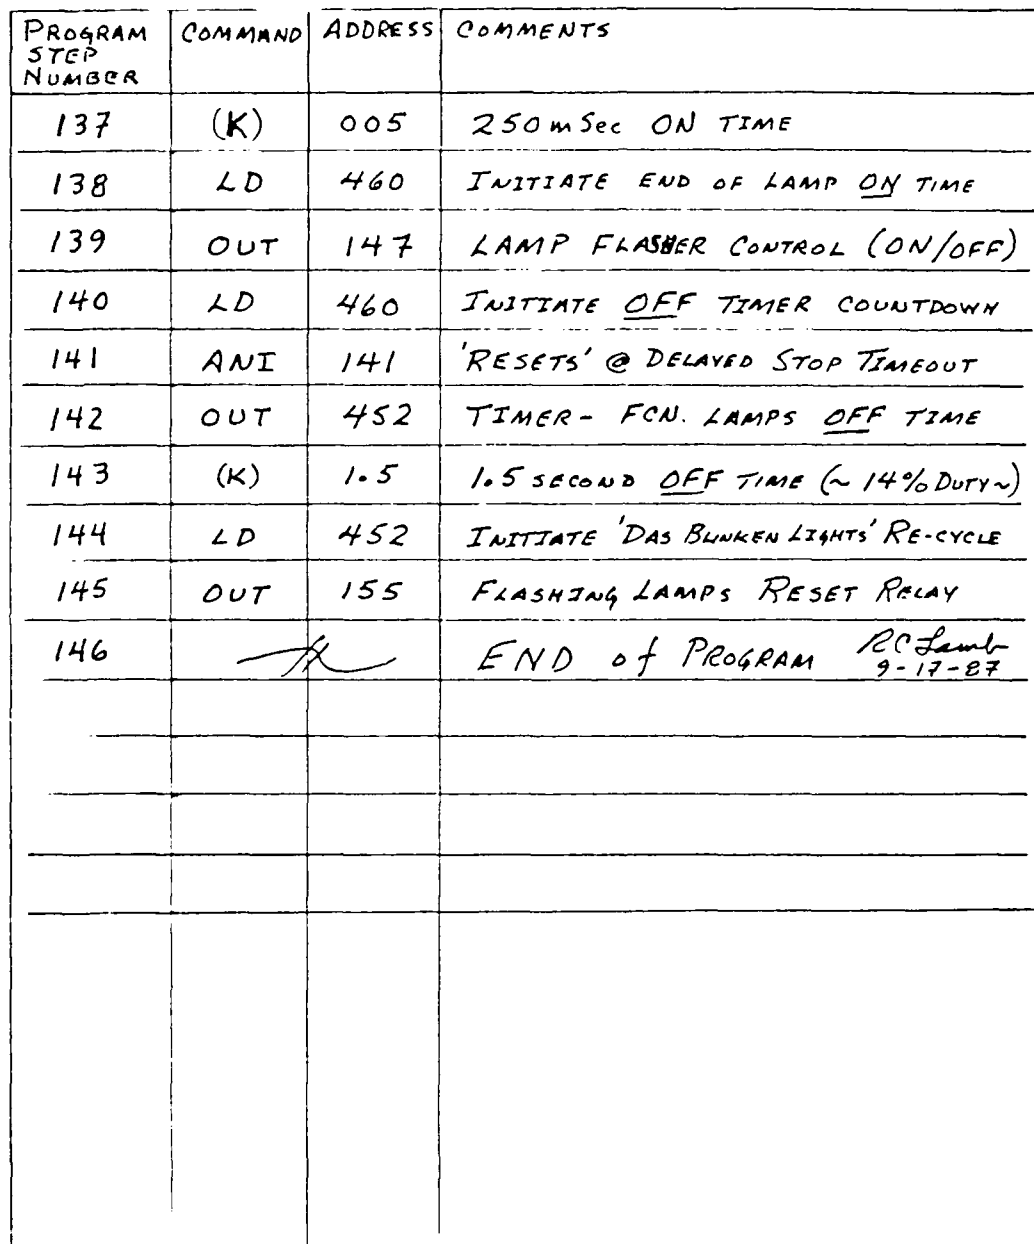 PROGRAM STEP NUMBER COMMAND ADDRESS COMMENTS
137 (K) 005 250 mSec ON TIME
138 LD 460 INITIATE END OF LAMP ON TIME
139 OUT 147 LAMP FLASHER CONTROL (ON/OFF)
140 LD 460 INITIATE OFF TIMER COUNTDOWN
141 ANI 141 'RESETS' @ DELAYED STOP TIMEOUT
142 OUT 452 TIMER - FCN. LAMPS OFF TIME
143 (K) 1.5 1.5 SECOND OFF TIME (~ 14% DUTY ~)
144 LD 452 INITIATE 'DAS BLINKEN LIGHTS' RE-CYCLE
145 OUT 155 FLASHING LAMPS RESET RELAY
146 END of PROGRAM RC Lamb
9-17-87